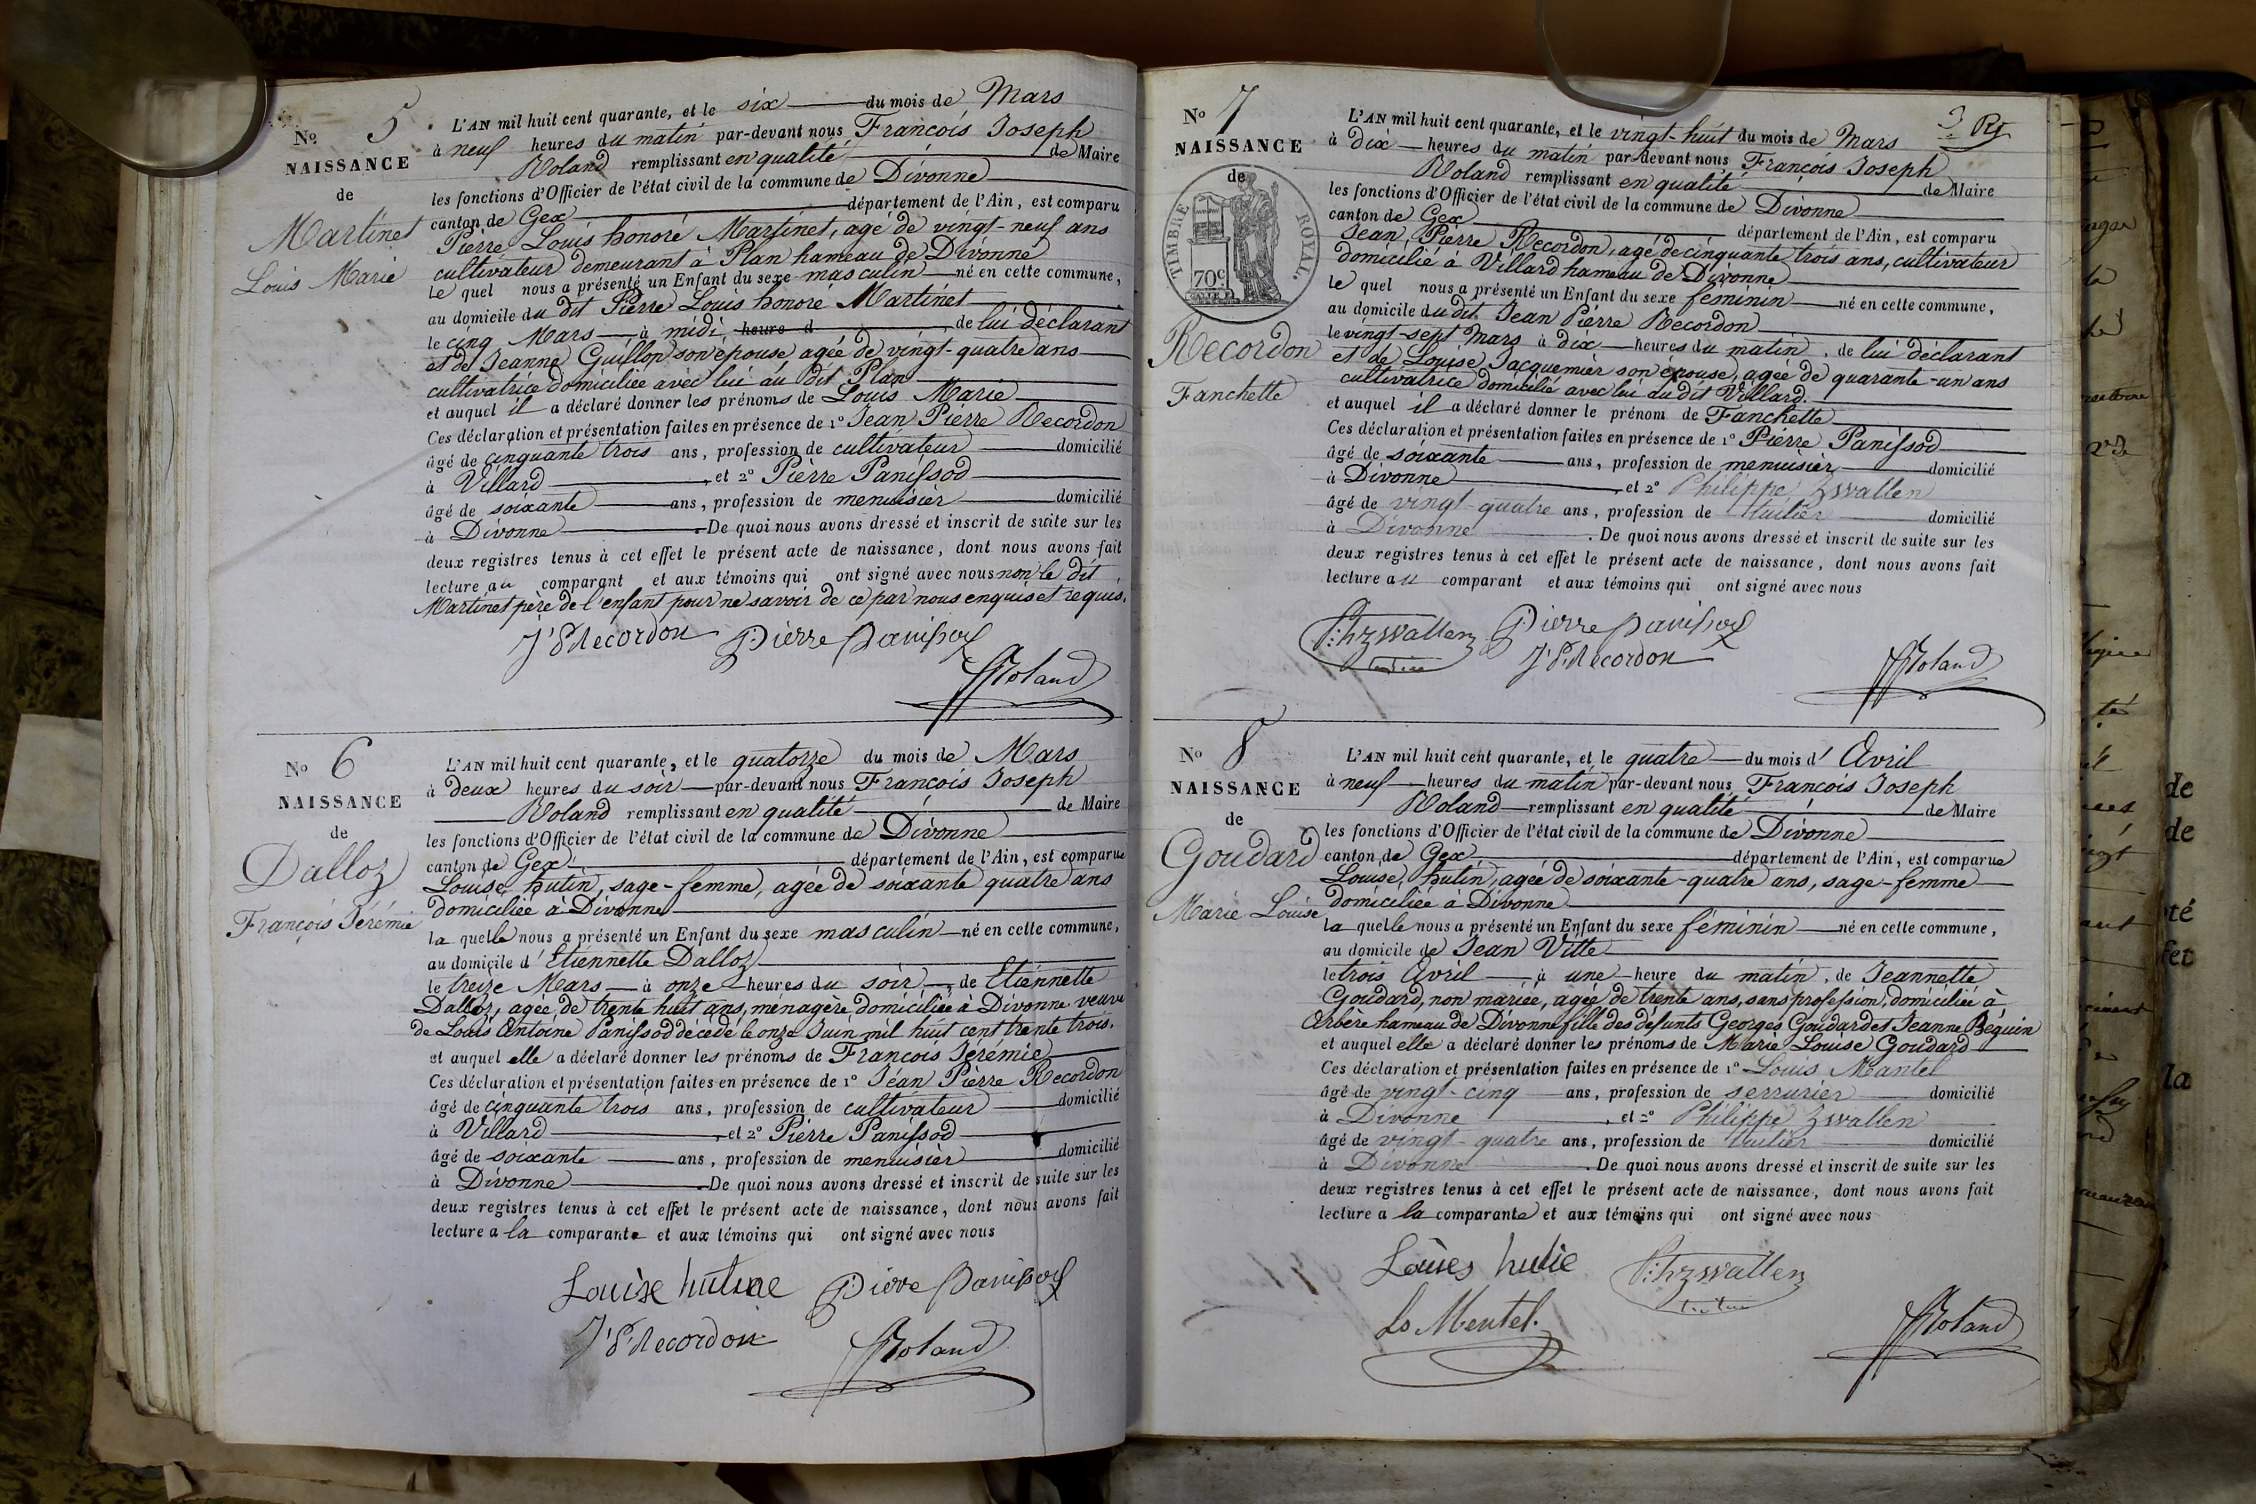 No 5
NAISSANCE
de
Martinet
Louis Marie
L'AN mil huit cent quarante, et le six du mois de Mars
à neuf heures du matin par-devant nous François Joseph
Roland remplissant en qualité de Maire
les fonctions d'Officier de l'état civil de la commune de Divonne
canton de Gex département de l'Ain, est comparu
Pierre Louis honoré Martinet, agé de vingt-neuf ans
cultivateur demeurant à Plan hameau de Divonne
le quel nous a présenté un Enfant du sexe masculin né en cette commune,
au domicile du dit Pierre Louis honoré Martinet
le cinq Mars à midi heure d , de lui déclarant
et de Jeanne Guillon son épouse agée de vingt-quatre ans
cultivatrice domiciliée avec lui au dit Plan
et auquel il a déclaré donner les prénoms de Louis Marie
Ces déclaration et présentation faites en présence de 1º Jean Pierre Recordon
âgé de cinquante trois ans, profession de cultivateur domicilié
à Villard , et 2º Pierre Panissod
âgé de soixante ans, profession de menuisier domicilié
à Divonne . De quoi nous avons dressé et inscrit de suite sur les
deux registres tenus à cet effet le présent acte de naissance, dont nous avons fait
lecture au comparant et aux témoins qui ont signé avec nous non le dit
Martinet père de l'enfant pour ne savoir de ce par nous enquis et requis.
J P Recordon Pierre Panissod
FJRoland
No 6
NAISSANCE
de
Dalloz
François Jérémie
L'AN mil huit cent quarante, et le quatorze du mois de Mars
à deux heures du soir par-devant nous François Joseph
Roland remplissant en qualité de Maire
les fonctions d'Officier de l'état civil de la commune de Divonne
canton de Gex département de l'Ain, est comparue
Louise hutin, sage-femme, agée de soixante quatre ans
domiciliée à Divonne
la quelle nous a présenté un Enfant du sexe masculin né en cette commune,
au domicile d'Etiennette Dalloz
le treize Mars à onze heures du soir, de Etiennette
Dalloz, agée de trente huit ans, ménagère domiciliée à Divonne veuve
de Louis Antoine Panissod décédé le onze Juin mil huit cent trente trois.
et auquel elle a déclaré donner les prénoms de François Jérémie
Ces déclaration et présentation faites en présence de 1º Jéan Pierre Recordon
âgé de cinquante trois ans, profession de cultivateur domicilié
à Villard , et 2º Pierre Panissod
âgé de soixante ans, profession de menuisier domicilié
à Divonne . De quoi nous avons dressé et inscrit de suite sur les
deux registres tenus à cet effet le présent acte de naissance, dont nous avons fait
lecture a la comparante et aux témoins qui ont signé avec nous
Louise hutine Pierre Panissod
J P Recordon FJRoland
No 7
NAISSANCE
de
TIMBRE ROYAL.
70c
Recordon
Fanchette
L'AN mil huit cent quarante, et le vingt-huit du mois de Mars
à dix heures du matin par-devant nous François Joseph
Roland remplissant en qualité de Maire
les fonctions d'Officier de l'état civil de la commune de Divonne
canton de Gex département de l'Ain, est comparu
Jean Pierre Recordon, agé de cinquante trois ans, cultivateur
domicilié à Villard hameau de Divonne
le quel nous a présenté un Enfant du sexe féminin né en cette commune,
au domicile du dit Jean Pierre Recordon
le vingt-sept Mars à dix heures du matin, de lui déclarant
et de Louise Jacquemier son épouse, agée de quarante-un ans
cultivatrice domicilié avec lui au dit Villard.
et auquel il a déclaré donner le prénom de Fanchette
Ces déclaration et présentation faites en présence de 1º Pierre Panissod
âgé de soixante ans, profession de menuisier domicilié
à Divonne , et 2º Philippe Zwallen
âgé de vingt-quatre ans, profession de tuilier domicilié
à Divonne . De quoi nous avons dressé et inscrit de suite sur les
deux registres tenus à cet effet le présent acte de naissance, dont nous avons fait
lecture au comparant et aux témoins qui ont signé avec nous
P:hzwallen Pierre Panissod
J P Recordon
FJRoland
No 8
NAISSANCE
de
Goudard
Marie Louise
L'AN mil huit cent quarante, et le quatre du mois d'Avril
à neuf heures du matin par-devant nous François Joseph
Roland remplissant en qualité de Maire
les fonctions d'Officier de l'état civil de la commune de Divonne
canton de Gex département de l'Ain, est comparue
Louise hutin, agée de soixante-quatre ans, sage-femme
domiciliée à Divonne
la quelle nous a présenté un Enfant du sexe féminin né en cette commune,
au domicile de Jean Vitte
le trois Avril à une heure du matin, de Jeannette
Goudard, non mariée, agée de trente ans, sans profession, domiciliée à
Arbère hameau de Divonne fille des défunts Georges Goudard et Jeanne Béguin
et auquel elle a déclaré donner les prénoms de Marie Louise Goudard
Ces déclaration et présentation faites en présence de 1º Louis Mantel
âgé de vingt-cinq ans, profession de serrurier domicilié
à Divonne , et 2º Philippe Zwallen
âgé de vingt-quatre ans, profession de tuilier domicilié
à Divonne . De quoi nous avons dressé et inscrit de suite sur les
deux registres tenus à cet effet le présent acte de naissance, dont nous avons fait
lecture a la comparante et aux témoins qui ont signé avec nous
Louies hutie P:hzwallen
Ls Mentel.
FJRoland